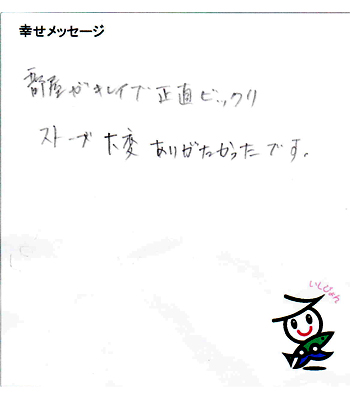 幸せメッセージ
部屋がキレイで正直ビックリ
ストーブ大変ありがたかったです。
いしぴょん